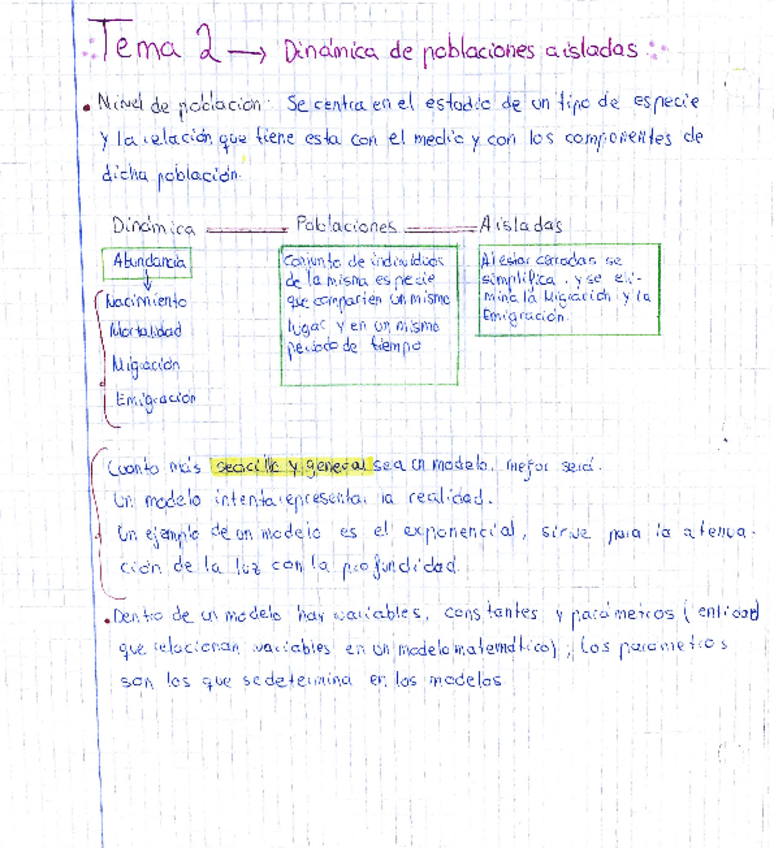 Tema 2 → Dinámica de poblaciones aisladas
• Nivel de población: Se centra en el estudio de un tipo de especie
y la relación que tiene esta con el medio y con los componentes de
dicha población.
Dinámica — Poblaciones — Aisladas
Abundancia
↓
Nacimiento
Mortalidad
Migración
Emigración
Conjunto de individuos
de la misma especie
que comparten un mismo
lugar y en un mismo
periodo de tiempo
Al estar cerradas se
simplifica, y se eli-
mina la Migración y la
Emigración.
Cuanto más sencillo y general sea un modelo, mejor será.
Un modelo intenta representar la realidad.
Un ejemplo de un modelo es el exponencial, sirve para la atenua-
ción de la luz con la profundidad.
• Dentro de un modelo hay variables, constantes y parámetros (entidad
que relacionan variables en un modelo matemático), los parámetros
son los que se determina en los modelos